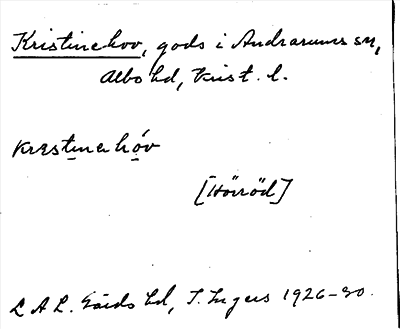 Kristinehov, gods i Andrarums sn,
Albo hd, Krist. l.
krɛstinɛhóv
[Hörröd]
L A L. Gärds hd, I. Ingers 1926-30.